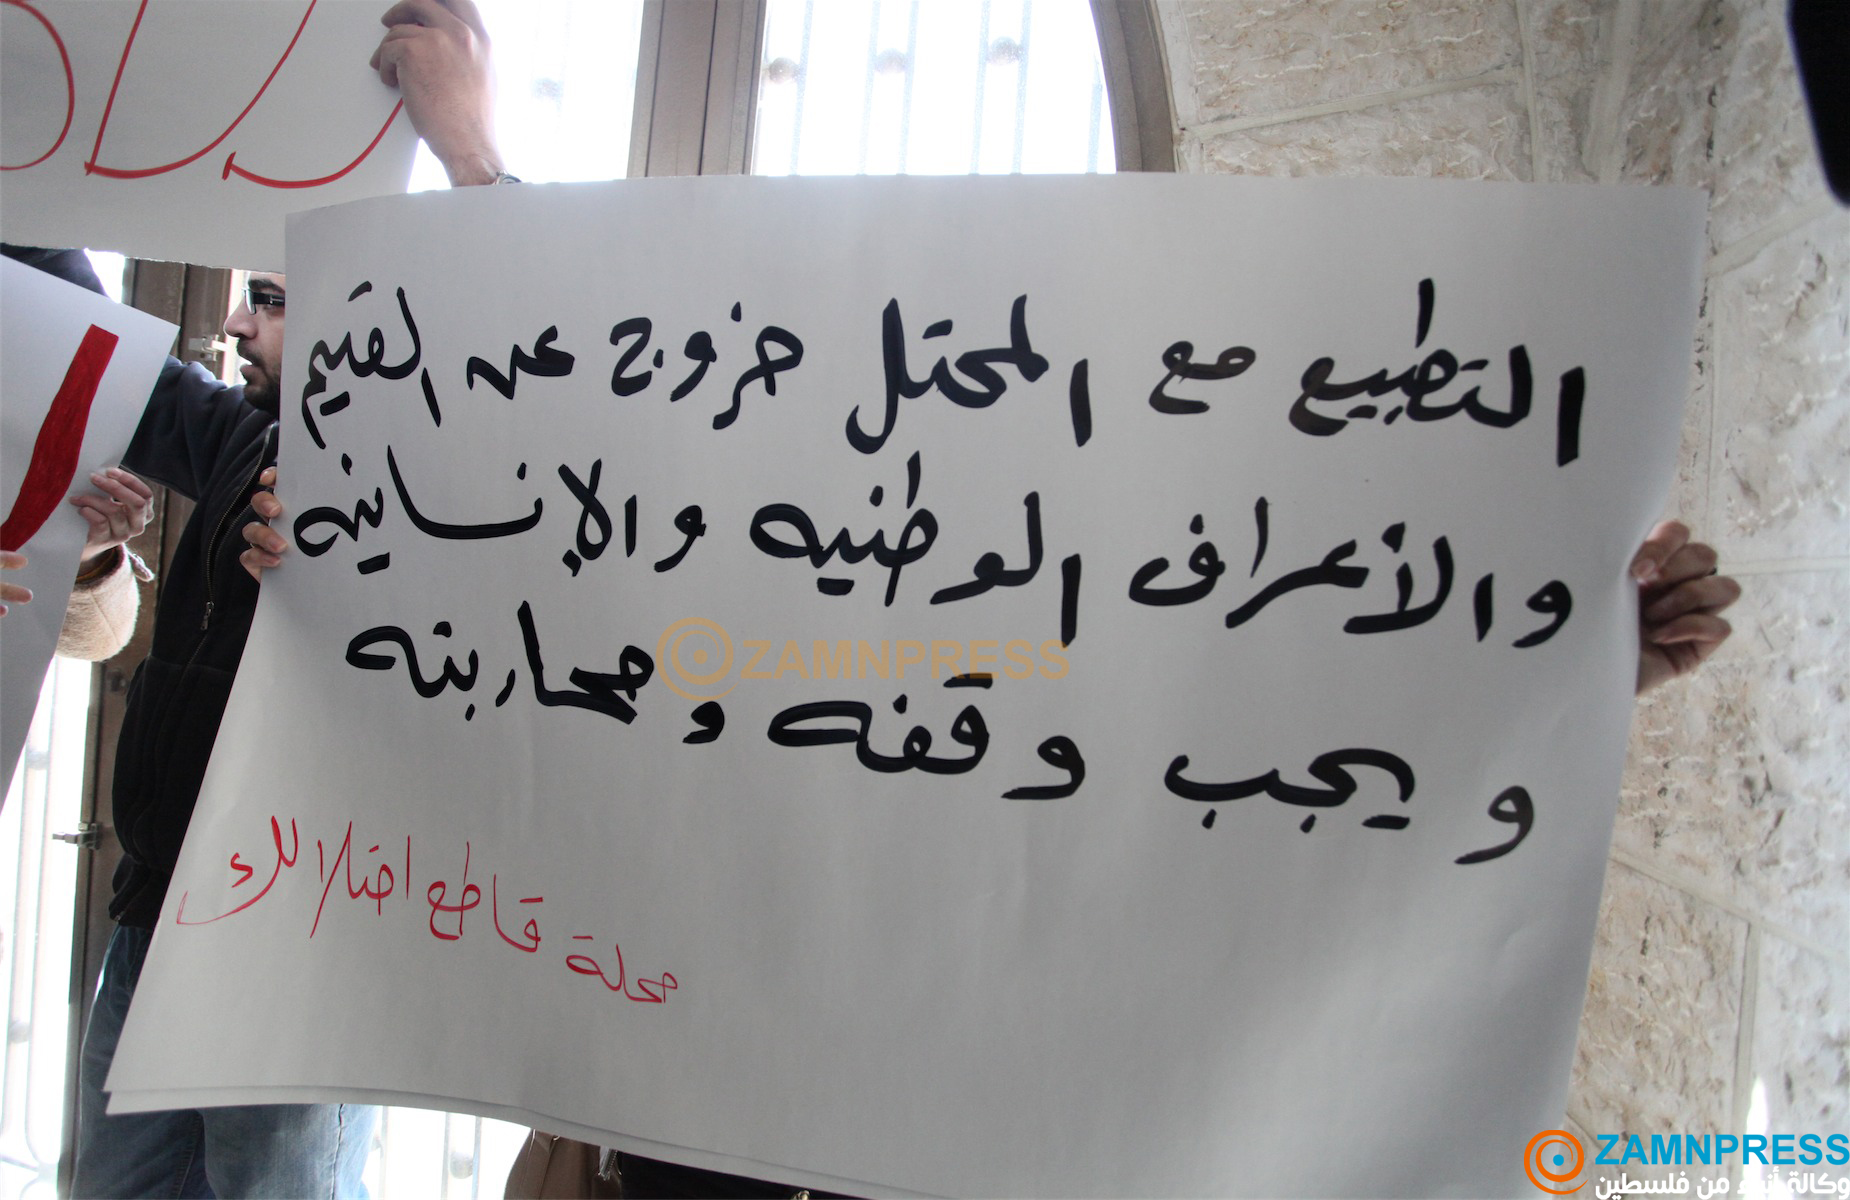 التطبيع مع المحتل خروج عن القيم
والأعراف الوطنيه والإنسانيه
ويجب وقفه ومحاربته
حملة قاطع احتلالك
ZAMNPRESS
ZAMNPRESS
وكالة أنباء من فلسطين